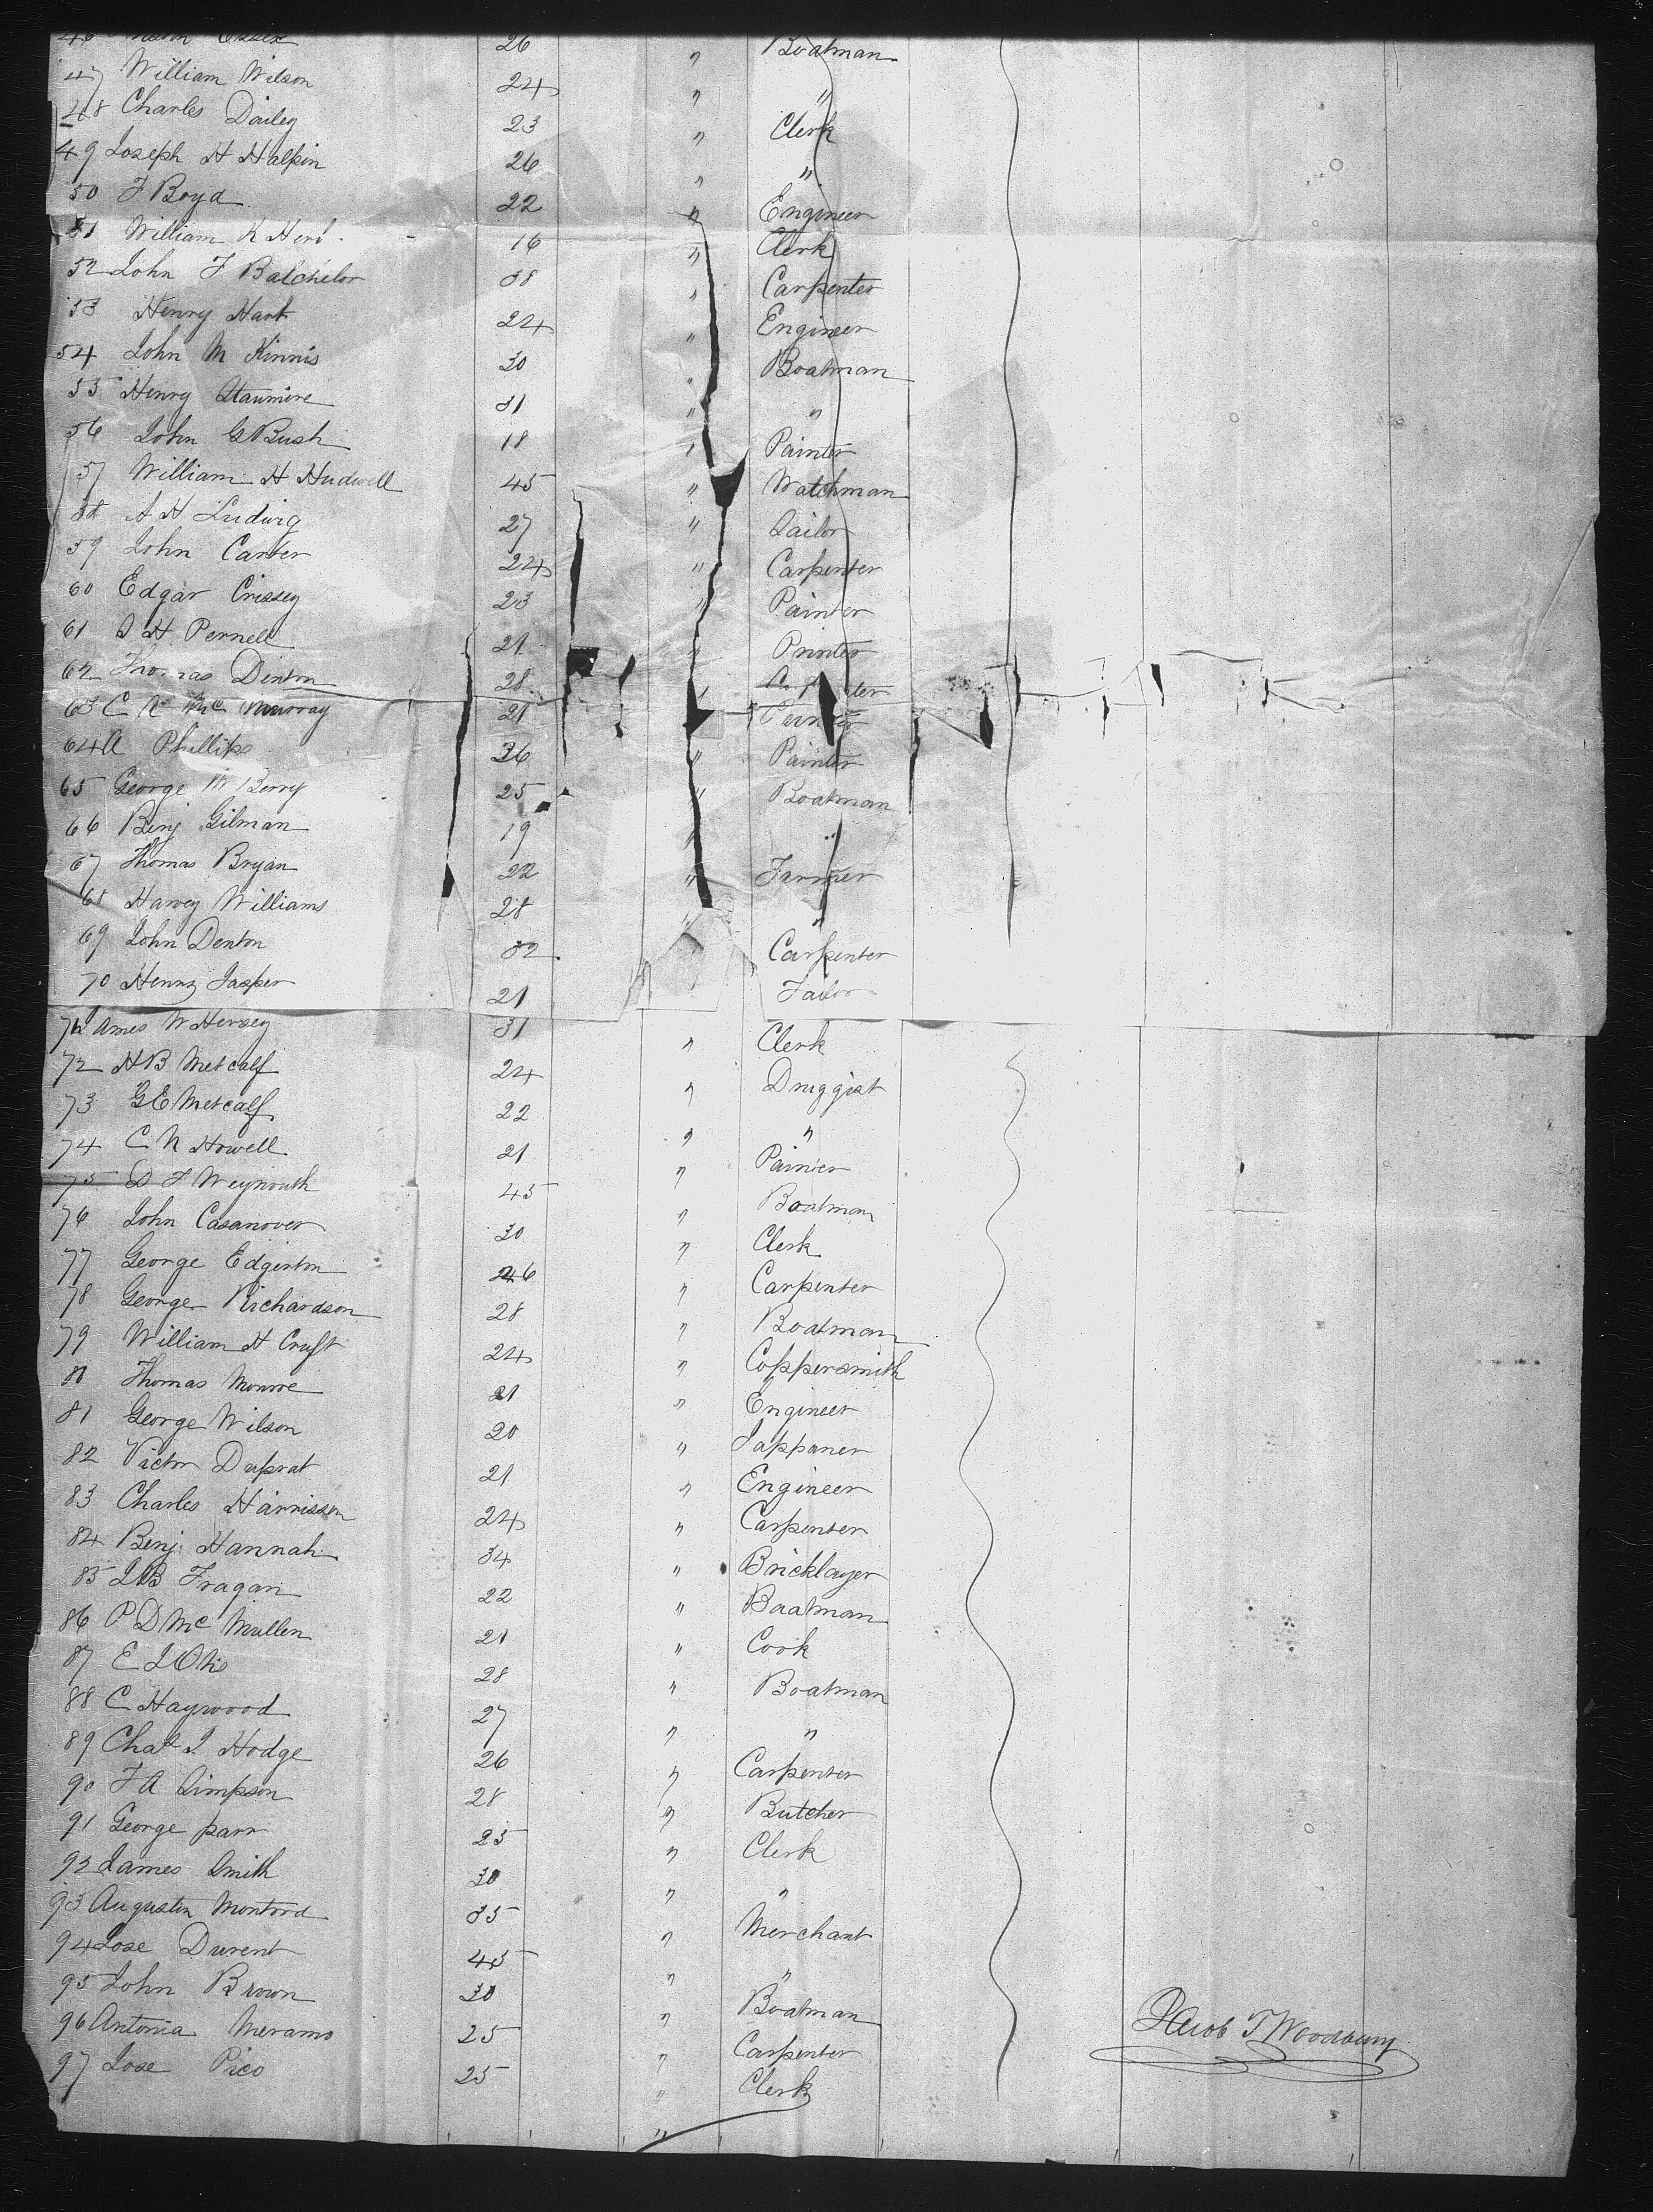 46 Essex 26 " Boatman
47 William Wilson 24 " "
48 Charles Dailey 23 " Clerk
49 Joseph H Halpin 26 " "
50 J Boyd 22 " Engineer
51 William K Herb 16 " Clerk
52 John F Batchelor 38 " Carpenter
53 Henry Hart 24 " Engineer
54 John M Kinnis 30 " Boatman
55 Henry 31 " "
56 John G Bush 18 " Painter
57 William H Hudwell 45 " Watchman
58 A H Ludwig 27 " Sailor
59 John Carter 24 " Carpenter
60 Edgar Crissey 23 " Painter
61 S H Pernell 21 " Printer
62 Thomas Denton 28 "
63 C A Mc Murray 21 "
64 A Phillips 36 " Painter
65 George W Berry 25 " Boatman
66 Benj Gilman 19 " "
67 Thomas Bryan 22 " Farmer
68 Harvey Williams 28 " "
69 John Denton 32 Carpenter
70 Henry Jasper 21 Tailor
71 James W Hersey 31 " Clerk
72 H B Metcalf 24 " Druggist
73 G E Metcalf 22 " "
74 C N Howell 21 " Painter
75 D F Weymouth 45 " Boatman
76 John Casanover 30 " Clerk
77 George Edginton 26 " Carpenter
78 George Richardson 28 " Boatman
79 William H Cruft 24 " Coppersmith
80 Thomas Monroe 21 " Engineer
81 George Wilson 20 " Jappaner
82 Victor Duprat 21 " Engineer
83 Charles Harrisson 24 " Carpenter
84 Benj Hannah 34 " Bricklayer
85 J B Fragan 22 " Boatman
86 P D Mc Mullen 21 " Cook
87 E J Otis 28 " Boatman
88 C Haywood 27 " "
89 Chas J Hodge 26 " Carpenter
90 F A Simpson 28 " Butcher
91 George parr 25 " Clerk
92 James Smith 30 " "
93 Augustin Montord 35 " Merchant
94 Jose Durent 45 " "
95 John Brown 30 " Boatman
96 Antonia Meramo 25 " Carpenter
97 Jose Pico 25 " Clerk
"
Jacob T Woodbury